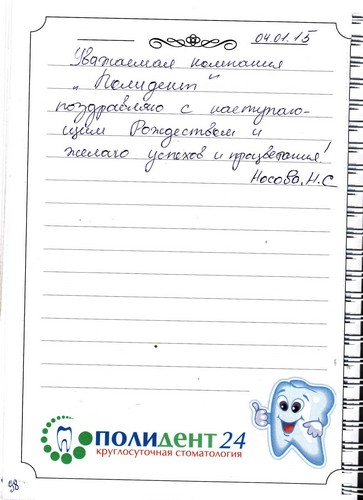 04.01.15
Уважаемая компания
„Полидент"
поздравляю с наступаю-
щим Рождеством и
желаю успехов и процветания!
Носова, Н.С
ПОЛИДЕНТ 24
круглосуточная стоматология
98